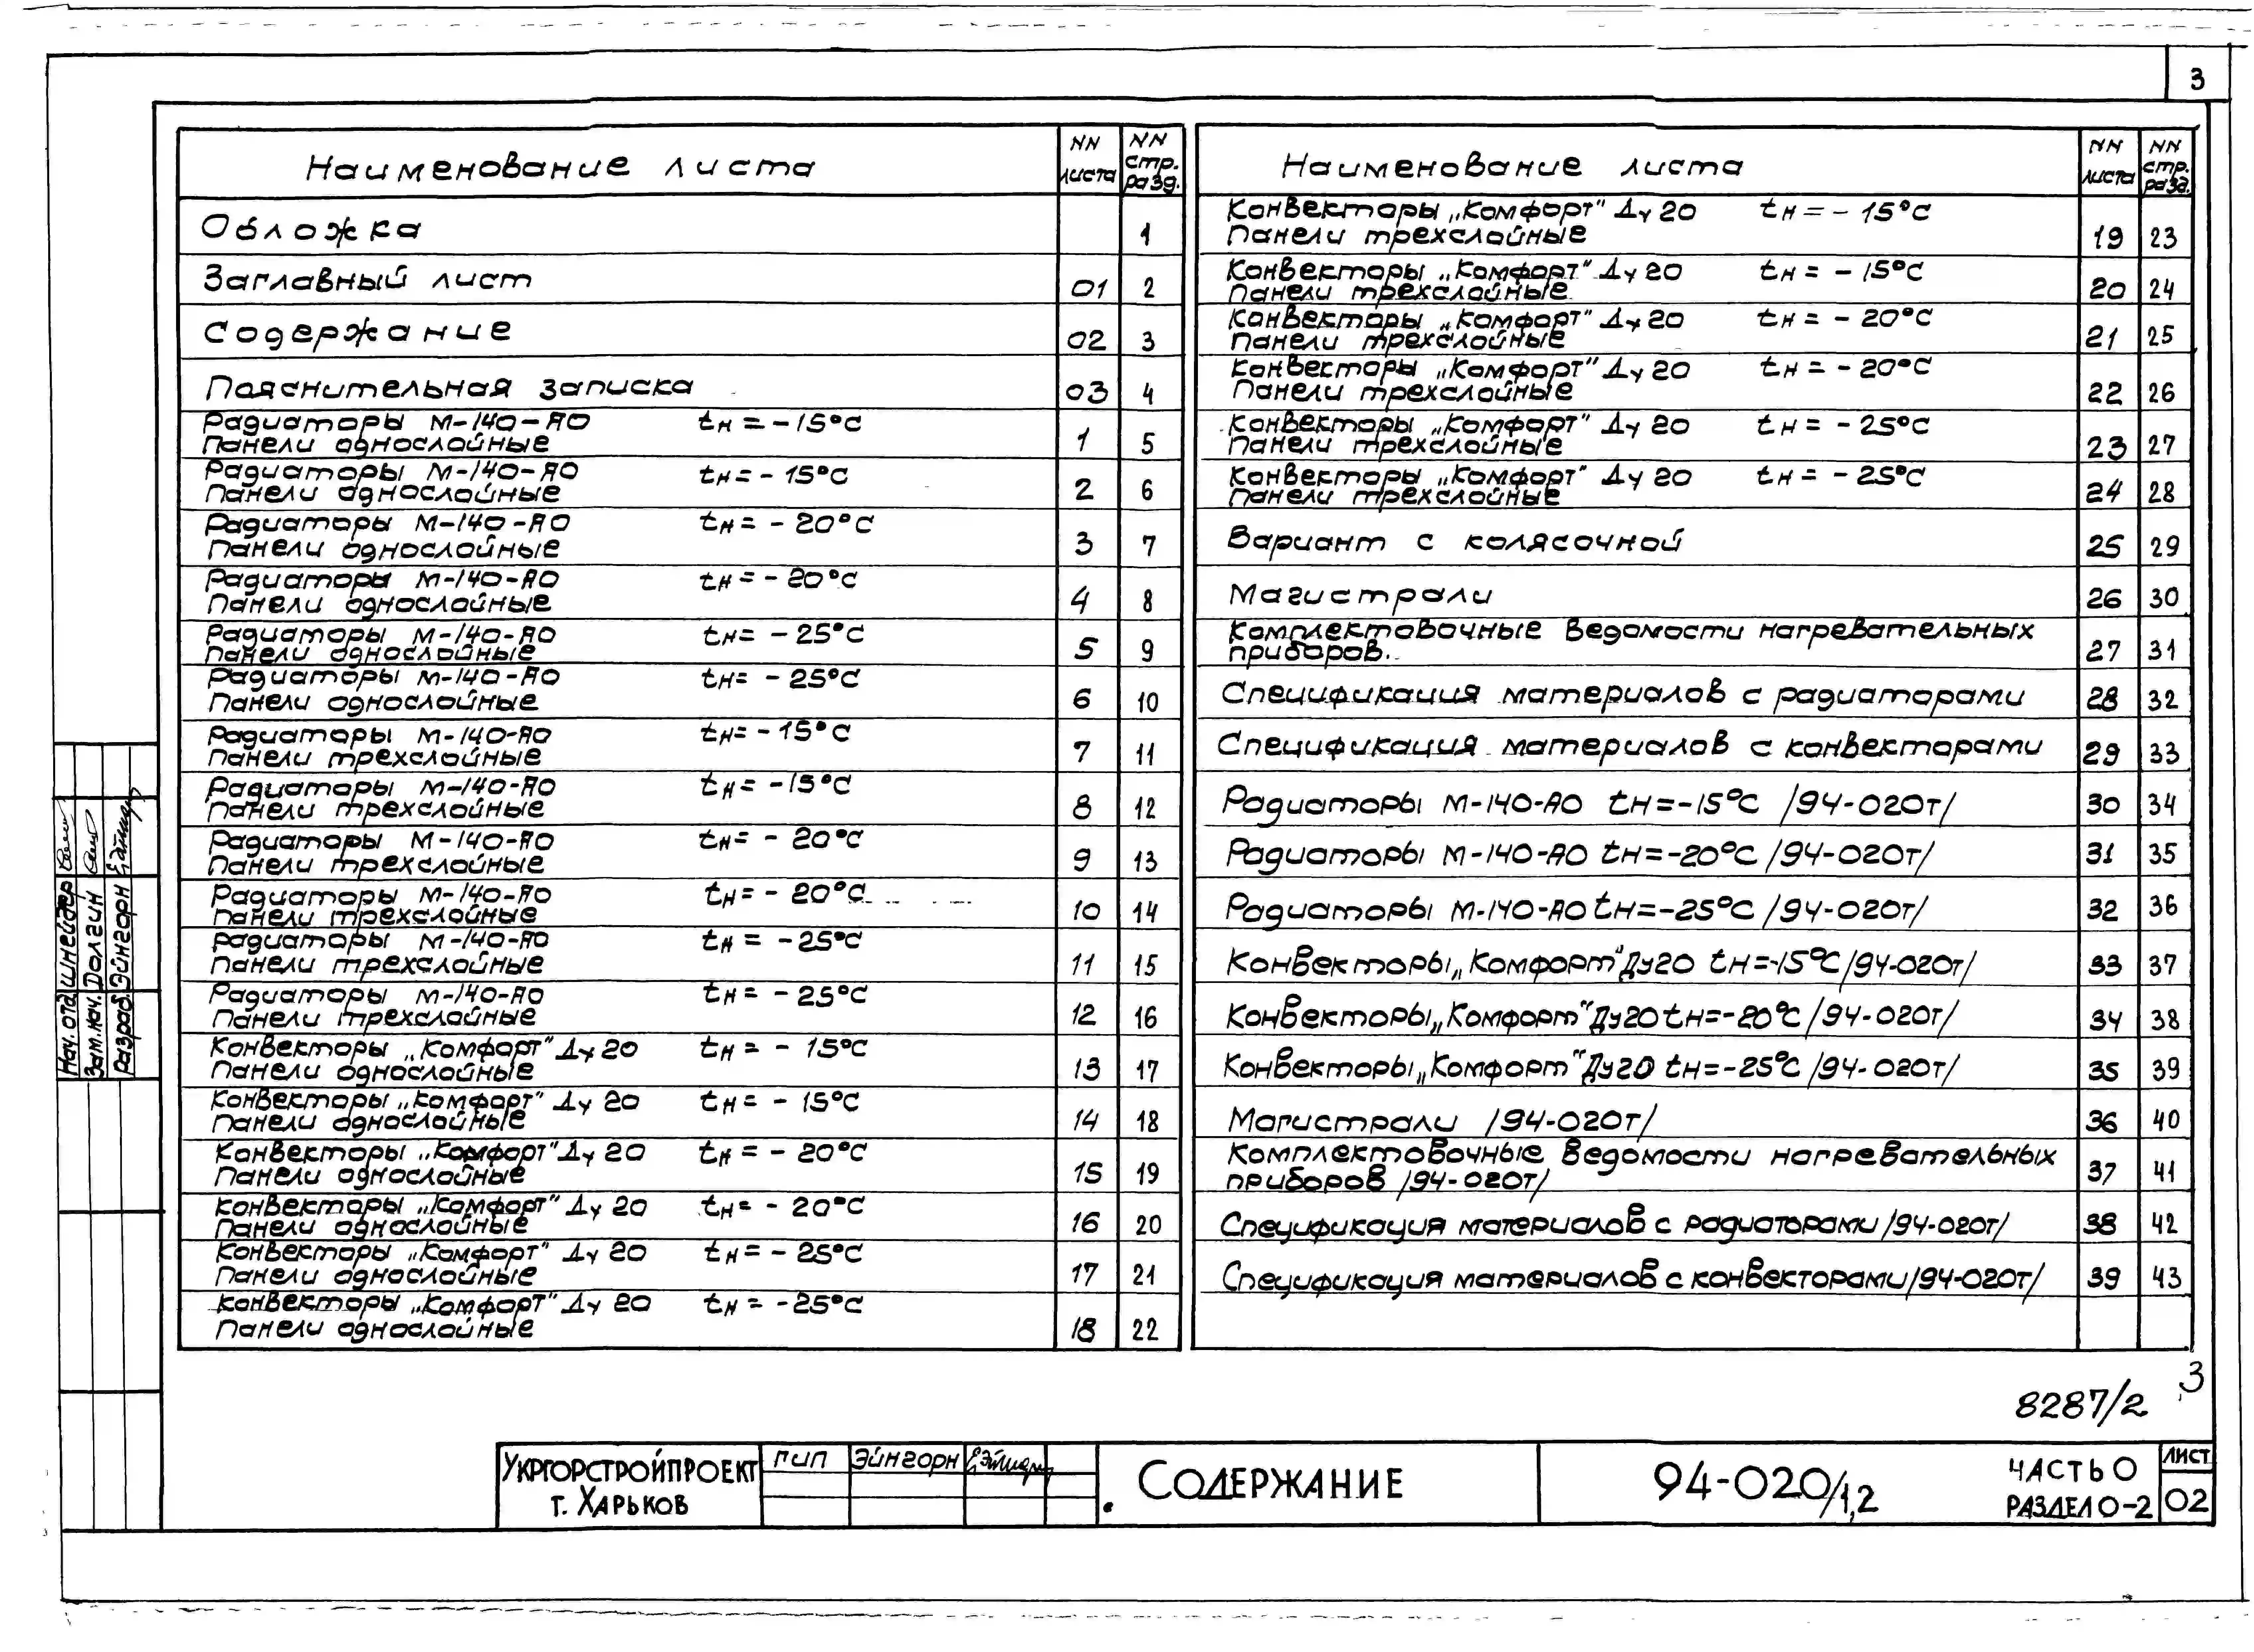 3
Наименование листа NN листа NN стр. разд.
Обложка 1
Заглавный лист 01 2
Содержание 02 3
Пояснительная записка 03 4
Радиаторы М-140-АО tн = -15°С
Панели однослойные 1 5
Радиаторы М-140-АО tн = -15°С
Панели однослойные 2 6
Радиаторы М-140-АО tн = -20°С
Панели однослойные 3 7
Радиаторы М-140-АО tн = -20°С
Панели однослойные 4 8
Радиаторы М-140-АО tн = -25°С
Панели однослойные 5 9
Радиаторы М-140-АО tн = -25°С
Панели однослойные 6 10
Радиаторы М-140-АО tн = -15°С
Панели трехслойные 7 11
Радиаторы М-140-АО tн = -15°С
Панели трехслойные 8 12
Радиаторы М-140-АО tн = -20°С
Панели трехслойные 9 13
Радиаторы М-140-АО tн = -20°С
Панели трехслойные 10 14
Радиаторы М-140-АО tн = -25°С
Панели трехслойные 11 15
Радиаторы М-140-АО tн = -25°С
Панели трехслойные 12 16
Конвекторы „Комфорт" Ду 20 tн = -15°С
Панели однослойные 13 17
Конвекторы „Комфорт" Ду 20 tн = -15°С
Панели однослойные 14 18
Конвекторы „Комфорт" Ду 20 tн = -20°С
Панели однослойные 15 19
Конвекторы „Комфорт" Ду 20 tн = -20°С
Панели однослойные 16 20
Конвекторы „Комфорт" Ду 20 tн = -25°С
Панели однослойные 17 21
Конвекторы „Комфорт" Ду 20 tн = -25°С
Панели однослойные 18 22
Наименование листа NN листа NN стр. разд.
Конвекторы „Комфорт" Ду 20 tн = -15°С
Панели трехслойные 19 23
Конвекторы „Комфорт" Ду 20 tн = -15°С
Панели трехслойные 20 24
Конвекторы „Комфорт" Ду 20 tн = -20°С
Панели трехслойные 21 25
Конвекторы „Комфорт" Ду 20 tн = -20°С
Панели трехслойные 22 26
Конвекторы „Комфорт" Ду 20 tн = -25°С
Панели трехслойные 23 27
Конвекторы „Комфорт" Ду 20 tн = -25°С
Панели трехслойные 24 28
Вариант с колясочной 25 29
Магистрали 26 30
Комплектовочные ведомости нагревательных
приборов. 27 31
Спецификация материалов с радиаторами 28 32
Спецификация материалов с конвекторами 29 33
Радиаторы М-140-АО tн=-15°С /94-020т/ 30 34
Радиаторы М-140-АО tн=-20°С /94-020т/ 31 35
Радиаторы М-140-АО tн=-25°С /94-020т/ 32 36
Конвекторы „Комфорт" Ду20 tн=-15°С /94-020т/ 33 37
Конвекторы „Комфорт" Ду20 tн=-20°С /94-020т/ 34 38
Конвекторы „Комфорт" Ду20 tн=-25°С /94-020т/ 35 39
Магистрали /94-020т/ 36 40
Комплектовочные ведомости нагревательных
приборов /94-020т/ 37 41
Спецификация материалов с радиаторами /94-020т/ 38 42
Спецификация материалов с конвекторами /94-020т/ 39 43
Нач. отд. Шнейдер
Зам.нач. Долгин
Разраб. Эйнгорн
3
8287/2
Укргорстройпроект
г. Харьков
ГИП Эйнгорн
Содержание
94-020/1,2
Часть 0
Раздел 0-2
Лист
02